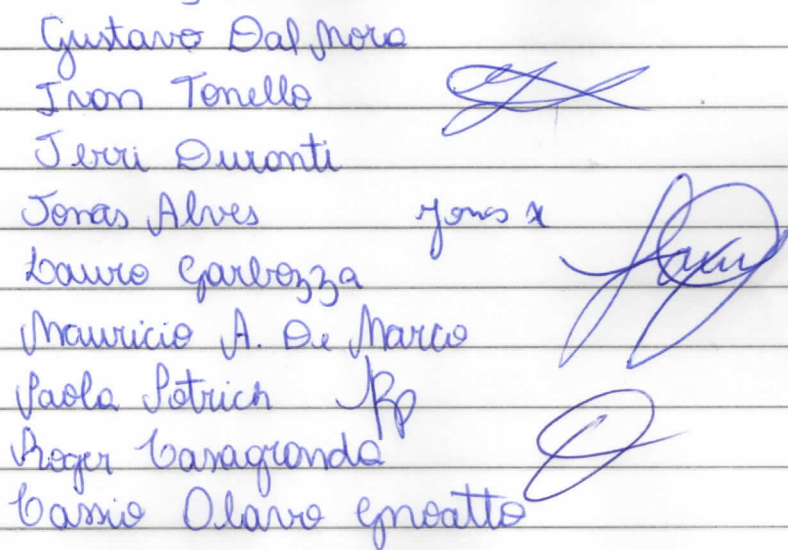 Gustavo Dal Moro
Ivan Tonello
Jerri Duranti
Jonas Alves Jonas
Lauro Garbozza
Mauricio A. De Marco
Paola Potrich
Roger Casagranda
Cassio Olavo Gnoatto